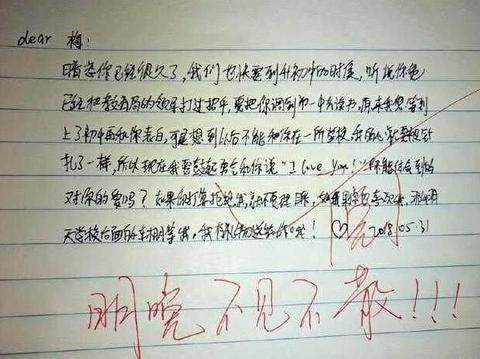 dear 梅:
暗恋你已经很久了，我们也快要到升初中的时候，听说你爸
已经和教育局的领导打过招呼，要把你调到市一中去读书，原来我想等到
上了初中再和你表白，可是想到以后不能和你在一所学校，我的心就要被针
扎了一样，所以现在我要鼓起勇气和你说"I love you!"你能体会到我
对你的爱吗？如果你打算拒绝我，就不要理我，如果
天学校后面的车棚等我，我有礼物送给你哦！♡ 2018.05.31
明晚不见不散!!!